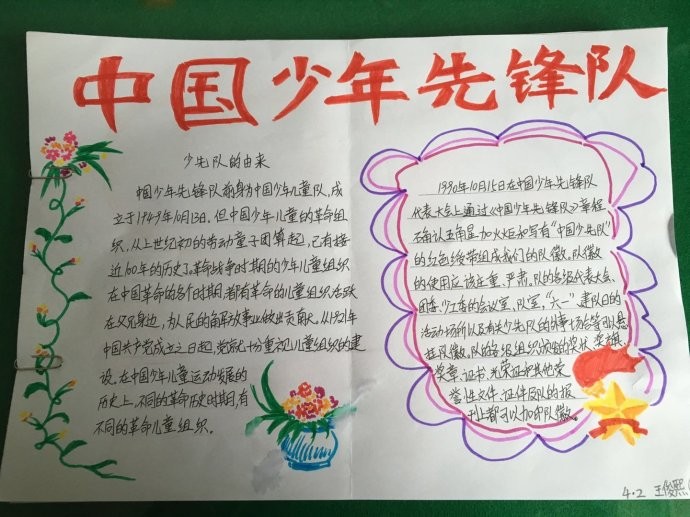 中国少年先锋队
少先队的由来
中国少年先锋队前身为中国少年儿童队，成
立于1949年10月13日，但中国少年儿童的革命组
织，从上世纪初的劳动童子团算起，已有接
近100年的历史了。革命战争时期的少年儿童组织
在中国革命的各个时期，都有革命的儿童组织活跃
在父兄身边，为人民的解放事业做出贡献。从1921年
中国共产党成立之日起，党就十分重视儿童组织的建
设。在中国少年儿童运动发展的
历史上，不同的革命历史时期，有
不同的革命儿童组织。
1990年10月15日在中国少年先锋队
代表大会上通过《中国少年先锋队》章程
确认五角星加火炬和写有“中国少先队”
的红色绶带组成我们的队徽。队徽
的使用应该庄重、严肃，队的各级代表大会、
团委、少工委的会议室，队室，“六一”建队日的
活动场所以及有关少先队的外事场合等可以悬
挂队徽，队的各级组织颁发的奖状、奖旗、
奖章、证书、光荣证和其他荣
誉性文件、证件及队的报
刊上都可以加印队徽。
4.2 王俊熙